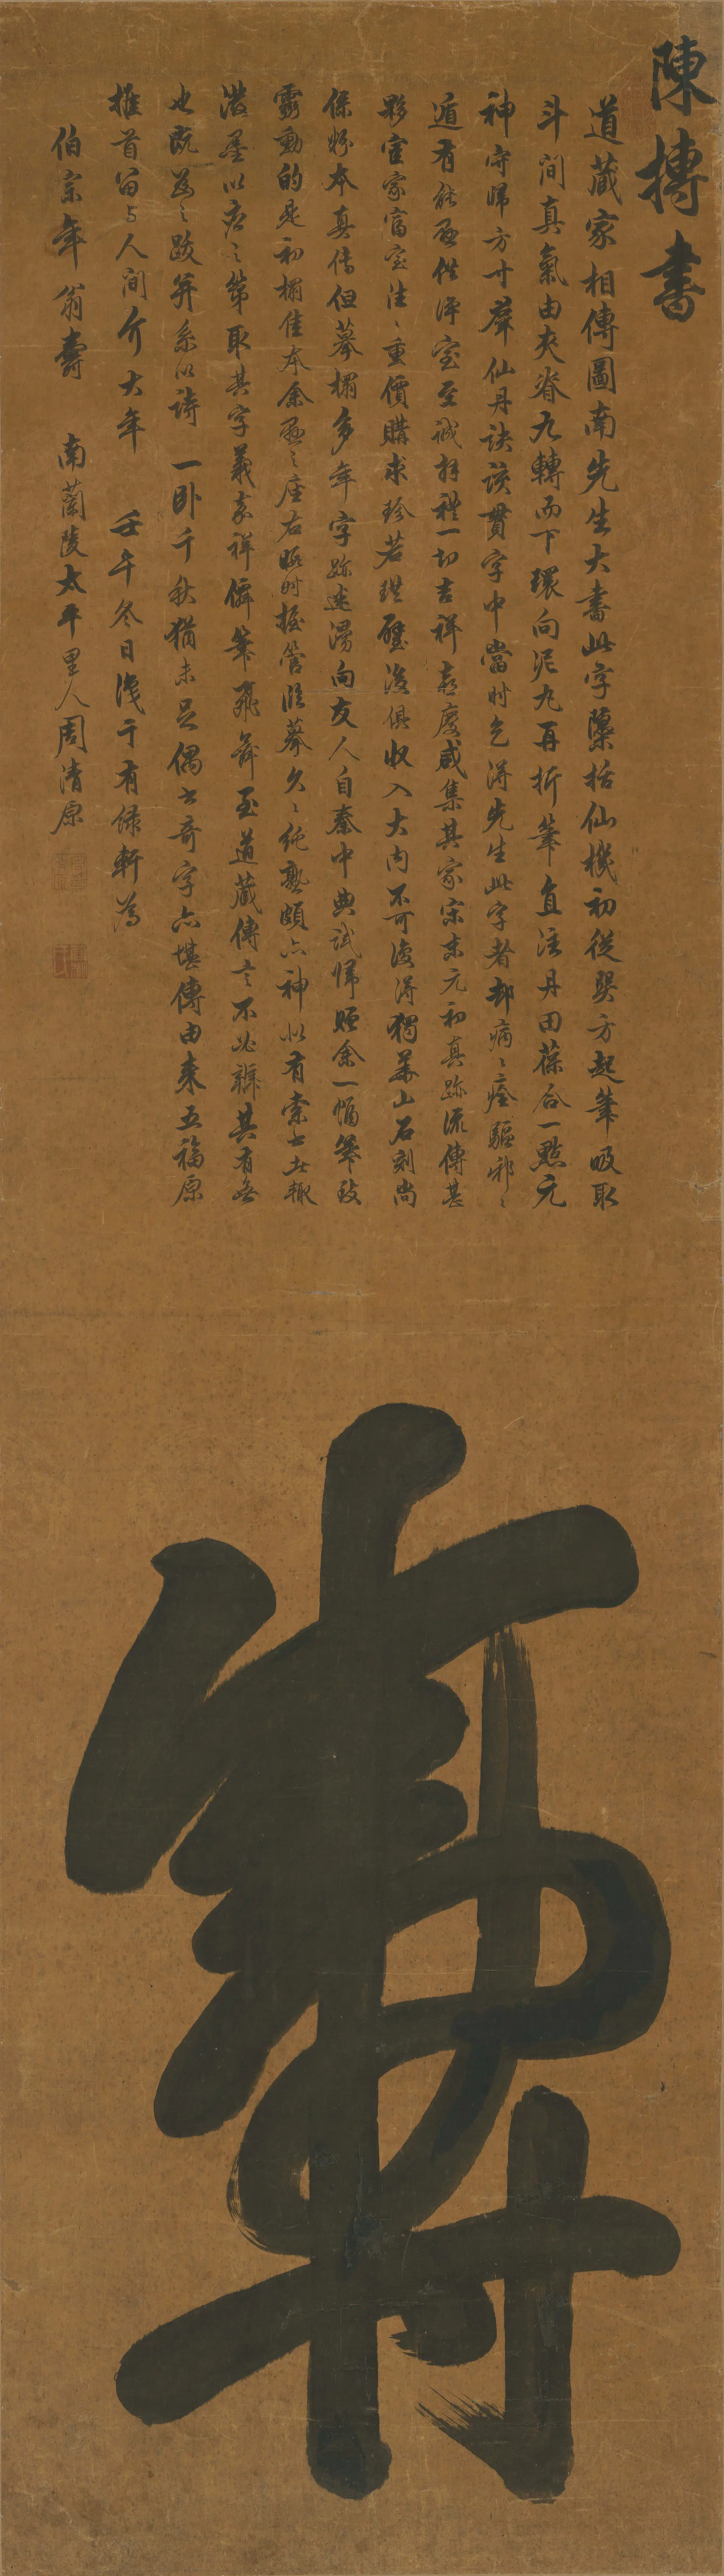 陳摶書
道藏家相傳圖南先生大書此字隱括仙機初從巽方起筆吸取
斗間真氣由夾脊九轉而下環向泥丸再折筆直注丹田葆合一點元
神守歸方寸群仙丹訣該貫字中當時乞得先生此字者却病病痊驅邪邪
遁有能函供淨室至誠拜禮一切吉祥喜慶咸集其家宋末元初真跡流傳甚
夥官家富室往往重價購求珍若拱璧後俱收入大內不可復得獨華山石刻尚
保好本真傳但摹搨多年字跡遂漫向友人自秦中典試歸貽余一幅筆致
靈動的是初搨佳本余函之座右暇時握管臨摹久久純熟頗亦神似有索書者輒
潑墨以應之第取其字義嘉祥僊筆飛舞至道藏傳言不必辨其有無
也既為之跋并系以詩 一卧千秋猶未足偶書奇字亦堪傳由來五福原
推首留与人間介大年 壬午冬日漫于有綠軒為
伯宗年翁壽 南蘭陵太平里人周清原